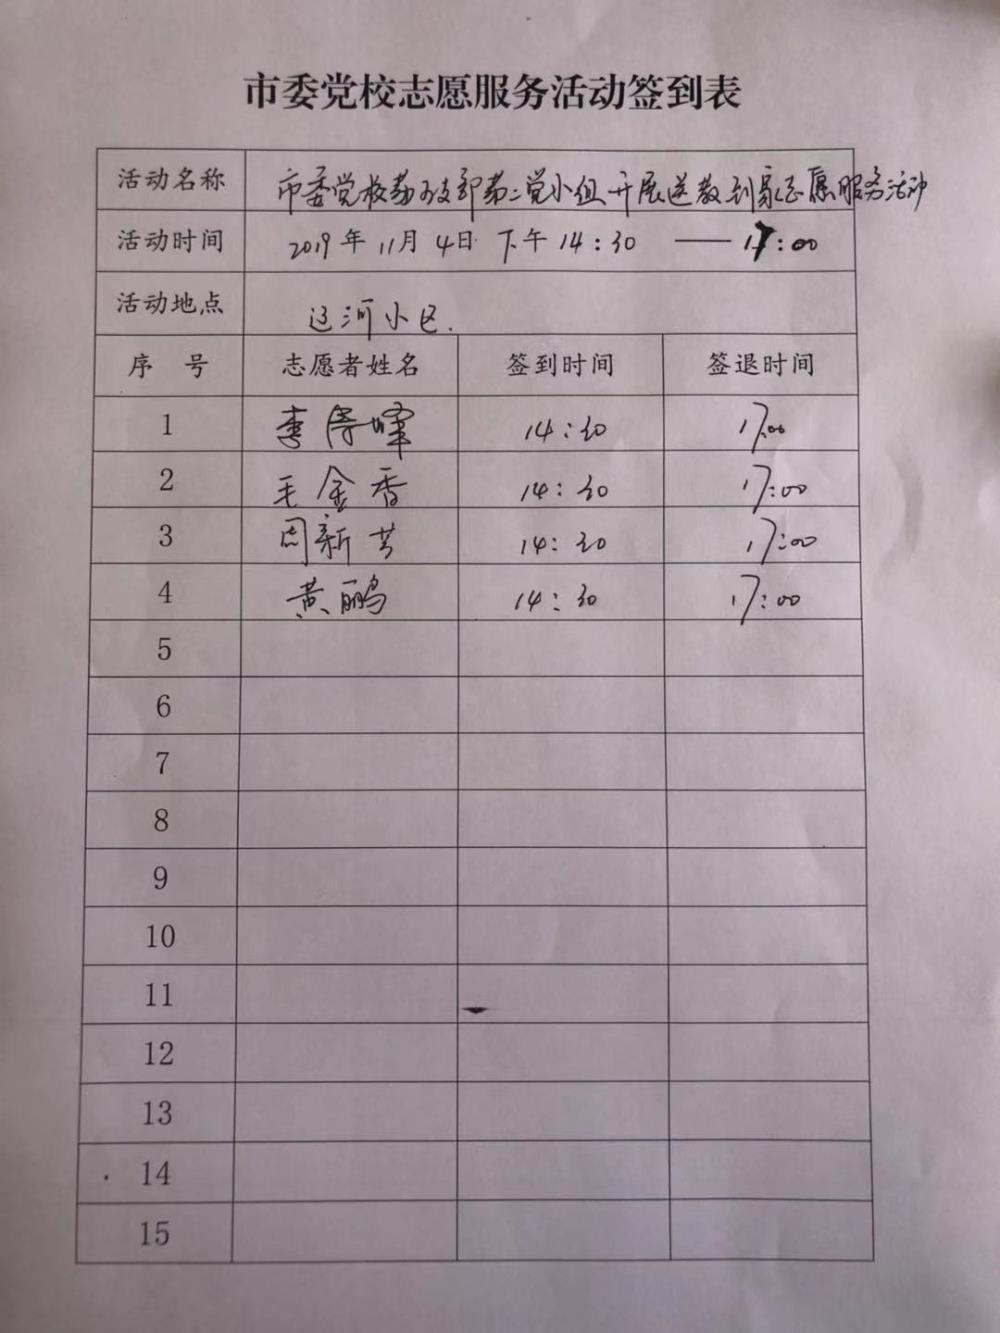 市委党校志愿服务活动签到表
活动名称 市委党校 支部第二党小组开展送教到家志愿服务活动
活动时间 2019年11月4日 下午14:30 —— 17:00
活动地点 河小区.
序 号 志愿者姓名 签到时间 签退时间
1 李 峰 14:30 17:00
2 毛金香 14:30 17:00
3 周新芳 14:30 17:00
4 黄鹂 14:30 17:00
5
6
7
8
9
10
11
12
13
14
15